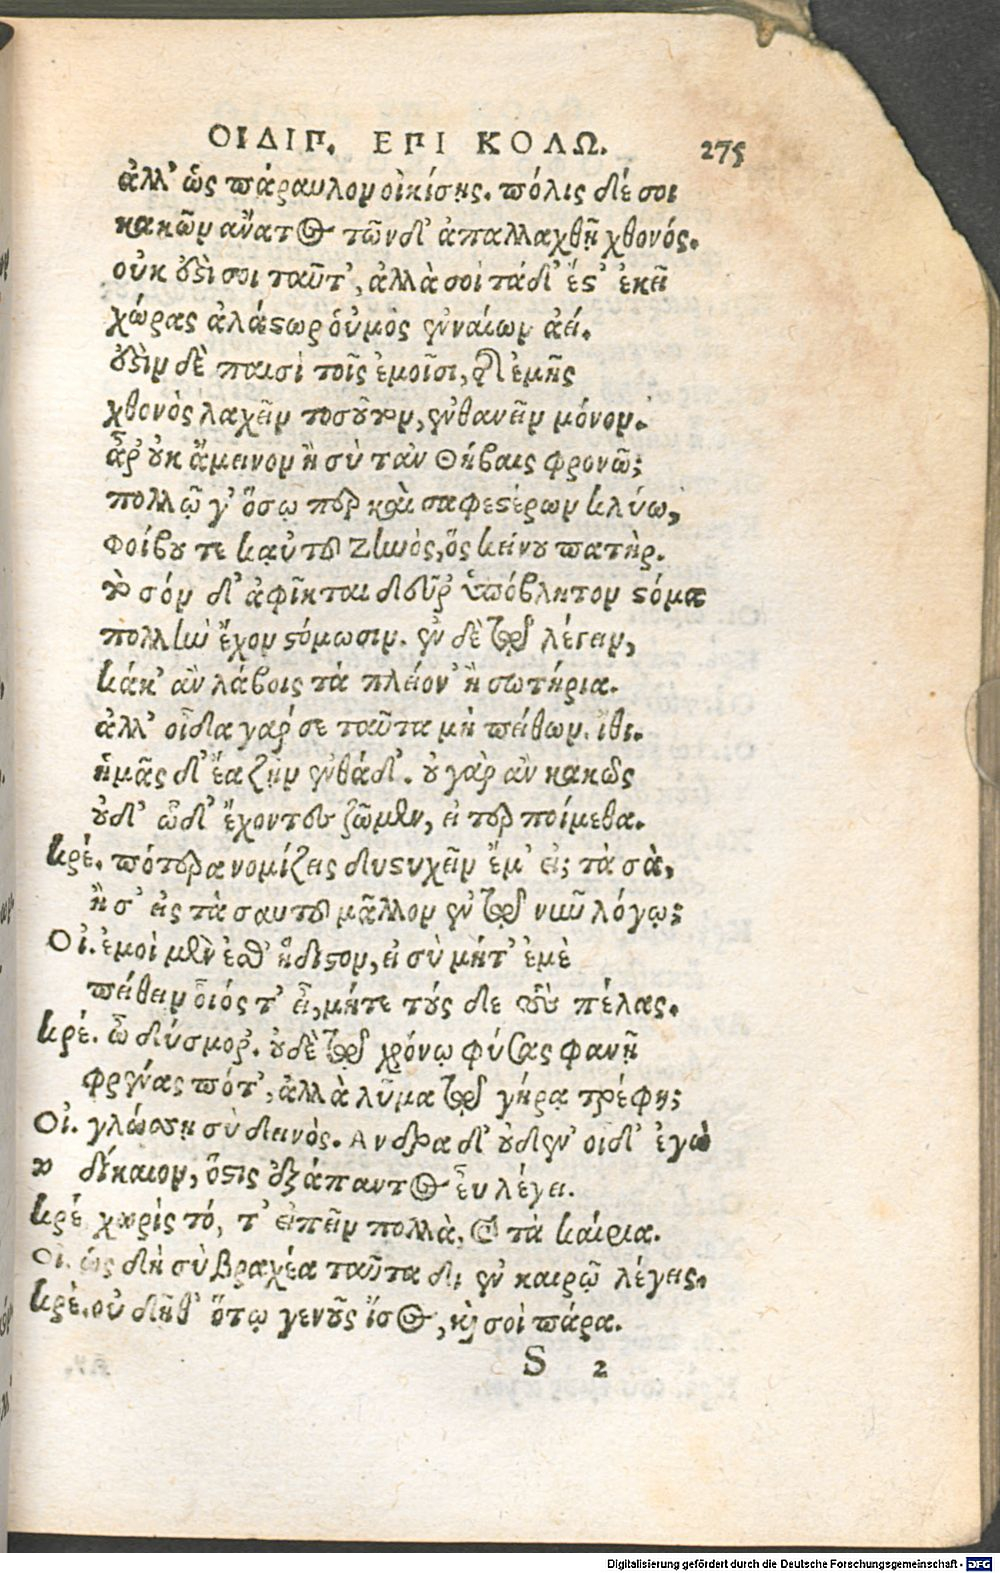 ΟΙΔΙΠ. ΕΠΙ ΚΟΛΩ. 275
ἀλλ' ὡς πάραυλον οἰκίσῃς. πόλις δέ σοι
κακῶν ἄνατος τῶνδ' ἀπαλλαχθῇ χθονός.
οὐκ ἔστι σοι ταῦτ', ἀλλὰ σοὶ τάδ' ἔστ' ἐκεῖ
χώρας ἀλάστωρ οὑμὸς ἐνναίων ἀεί.
ἔστιν δὲ παισὶ τοῖς ἐμοῖσι, τῆς ἐμῆς
χθονὸς λαχεῖν τοσοῦτον, ἐνθανεῖν μόνον.
ἆρ' οὐκ ἄμεινον ἢ σὺ τἀν Θήβαις φρονῶ;
πολλῷ γ' ὅσῳ περ καὶ σαφεστέρων κλύω,
Φοίβου τε καὐτοῦ Ζηνὸς, ὃς κείνου πατήρ.
τὸ σὸν δ' ἀφῖκται δεῦρ' ὑπόβλητον στόμα
πολλὴν ἔχον στόμωσιν. ἐν δὲ τῷ λέγειν,
κάκ' ἂν λάβοις τὰ πλείον' ἢ σωτήρια.
ἀλλ' οἶδα γάρ σε ταῦτα μὴ πείθων. ἴθι.
ἡμᾶς δ' ἔα ζῆν ἐνθάδ'. οὐ γὰρ ἂν κακῶς
οὐδ' ὧδ' ἔχοντες ζῶμεν, εἰ τερποίμεθα.
κρέ. πότερα νομίζεις δυστυχεῖν ἔμ' εἰς τὰ σὰ,
ἢ σ' εἰς τὰ σαυτοῦ μᾶλλον ἐν τῷ νῦν λόγῳ;
Οἰ. ἐμοὶ μὲν ἐσθ' ἥδιστον, εἰ σὺ μήτ' ἐμὲ
πείθειν οἷός τ' εἶ, μήτε τούσδε τοὺς πέλας.
κρέ. ὦ δύσμορ'. οὐδὲ τῷ χρόνῳ φύσας φανῇ
φρένας πότ', ἀλλὰ λῦμα τῷ γήρᾳ τρέφῃ;
Οἰ. γλώσσῃ σὺ δεινός. Ἄνδρα δ' οὐδέν' οἶδ' ἐγὼ
δίκαιον, ὅστις ἐξ ἅπαντος εὖ λέγει.
κρέ. χωρὶς τό, τ' εἰπεῖν πολλὰ, καὶ τὰ καίρια.
Οἰ. ὡς δὴ σὺ βραχέα ταῦτα δ' ἐν καιρῷ λέγεις.
κρέ. οὐ δῆθ' ὅτῳ γε νοῦς ἴσος, καὶ σοὶ πάρα.
S 2
Digitalisierung gefördert durch die Deutsche Forschungsgemeinschaft - DFG